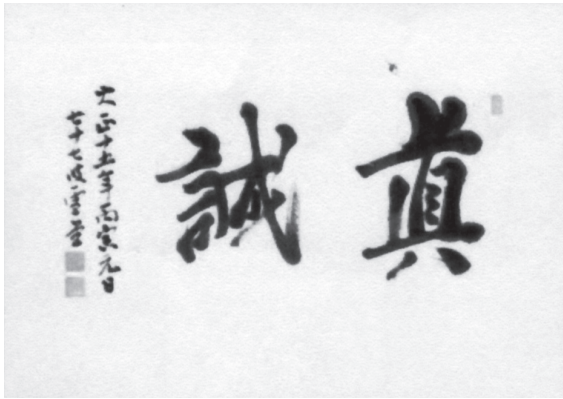 眞誠
大正十五年丙寅元日
七十七